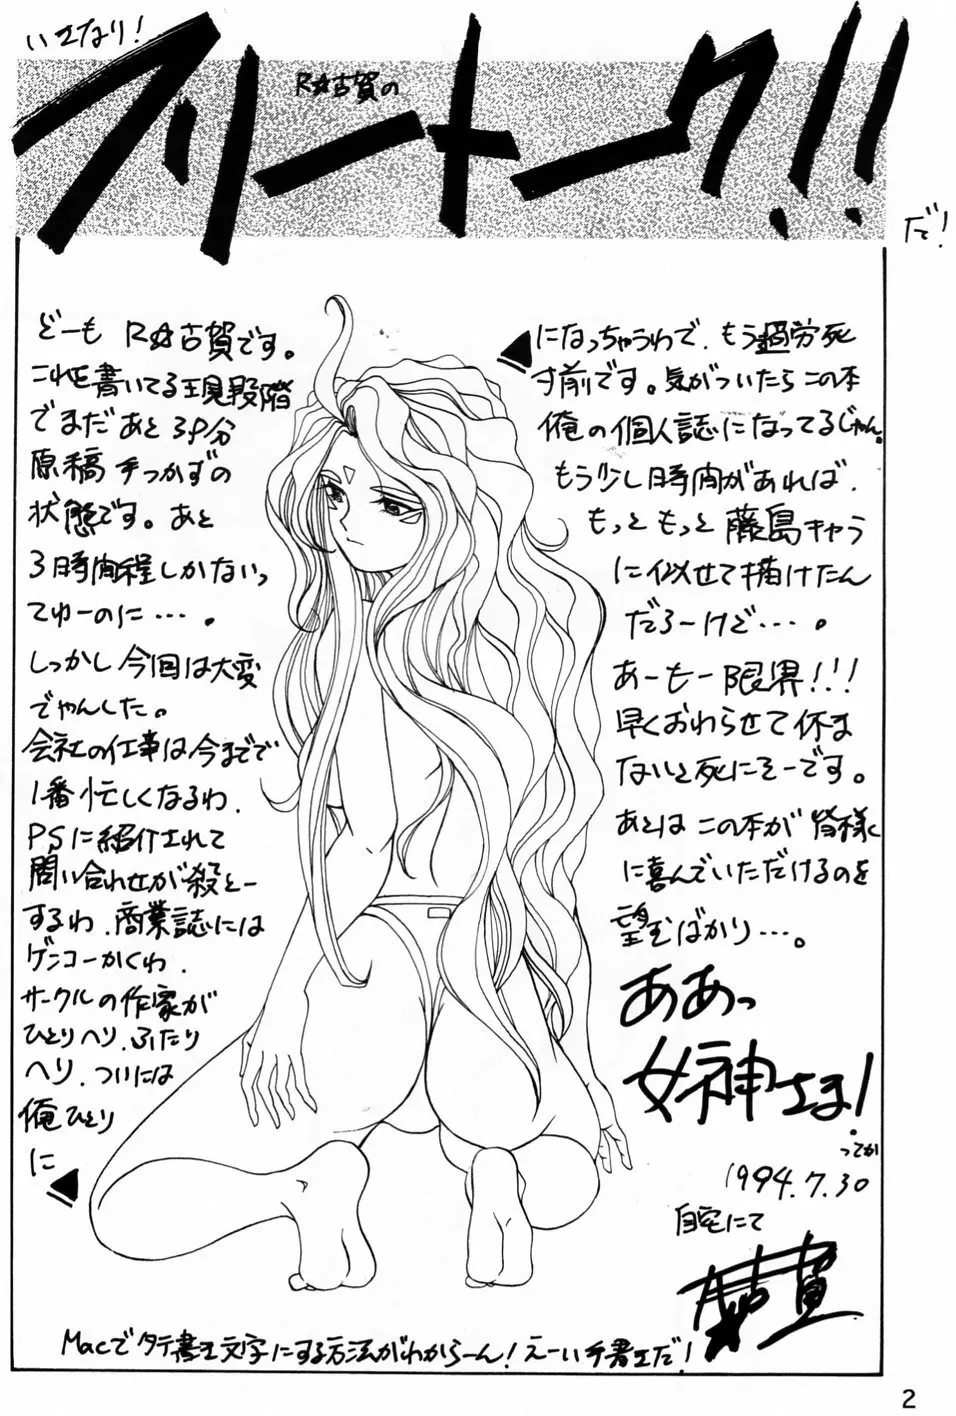 いきなり!
R☆古賀の
フリートーク!!
だ!
どーも R☆古賀です。
これを書いてる現段階
でまだあと39分
原稿手つかずの
状態です。あと
3時間程しかないっ
てゆーのに…。
しっかし今回は大変
でやんした。
会社の仕事は今までで
1番忙しくなるわ、
PSに紹介されて
問い合わせが殺とー
するわ、商業誌には
ゲンコーかくわ、
サークルの作家が
ひとりヘリ、ふたり
ヘリ、ついには
俺ひとり
に
になっちゃうわで、もう過労死
寸前です。気がついたらこの本
俺の個人誌になってるじゃん。
もう少し時間があれば、
もっともっと藤島キャラ
に似せて描けたん
だろーけど…。
あーもー限界!!!
早くおわらせて休ま
ないと死にそーです。
あとはこの本が皆様に
に喜んでいただけるのを
望むばかり…。
ああっ
女神さま!
ってか
1994.7.30
自宅にて
R☆古賀
Macでタテ書き文字にする方法がわからーん!えーい手書きだ!
2